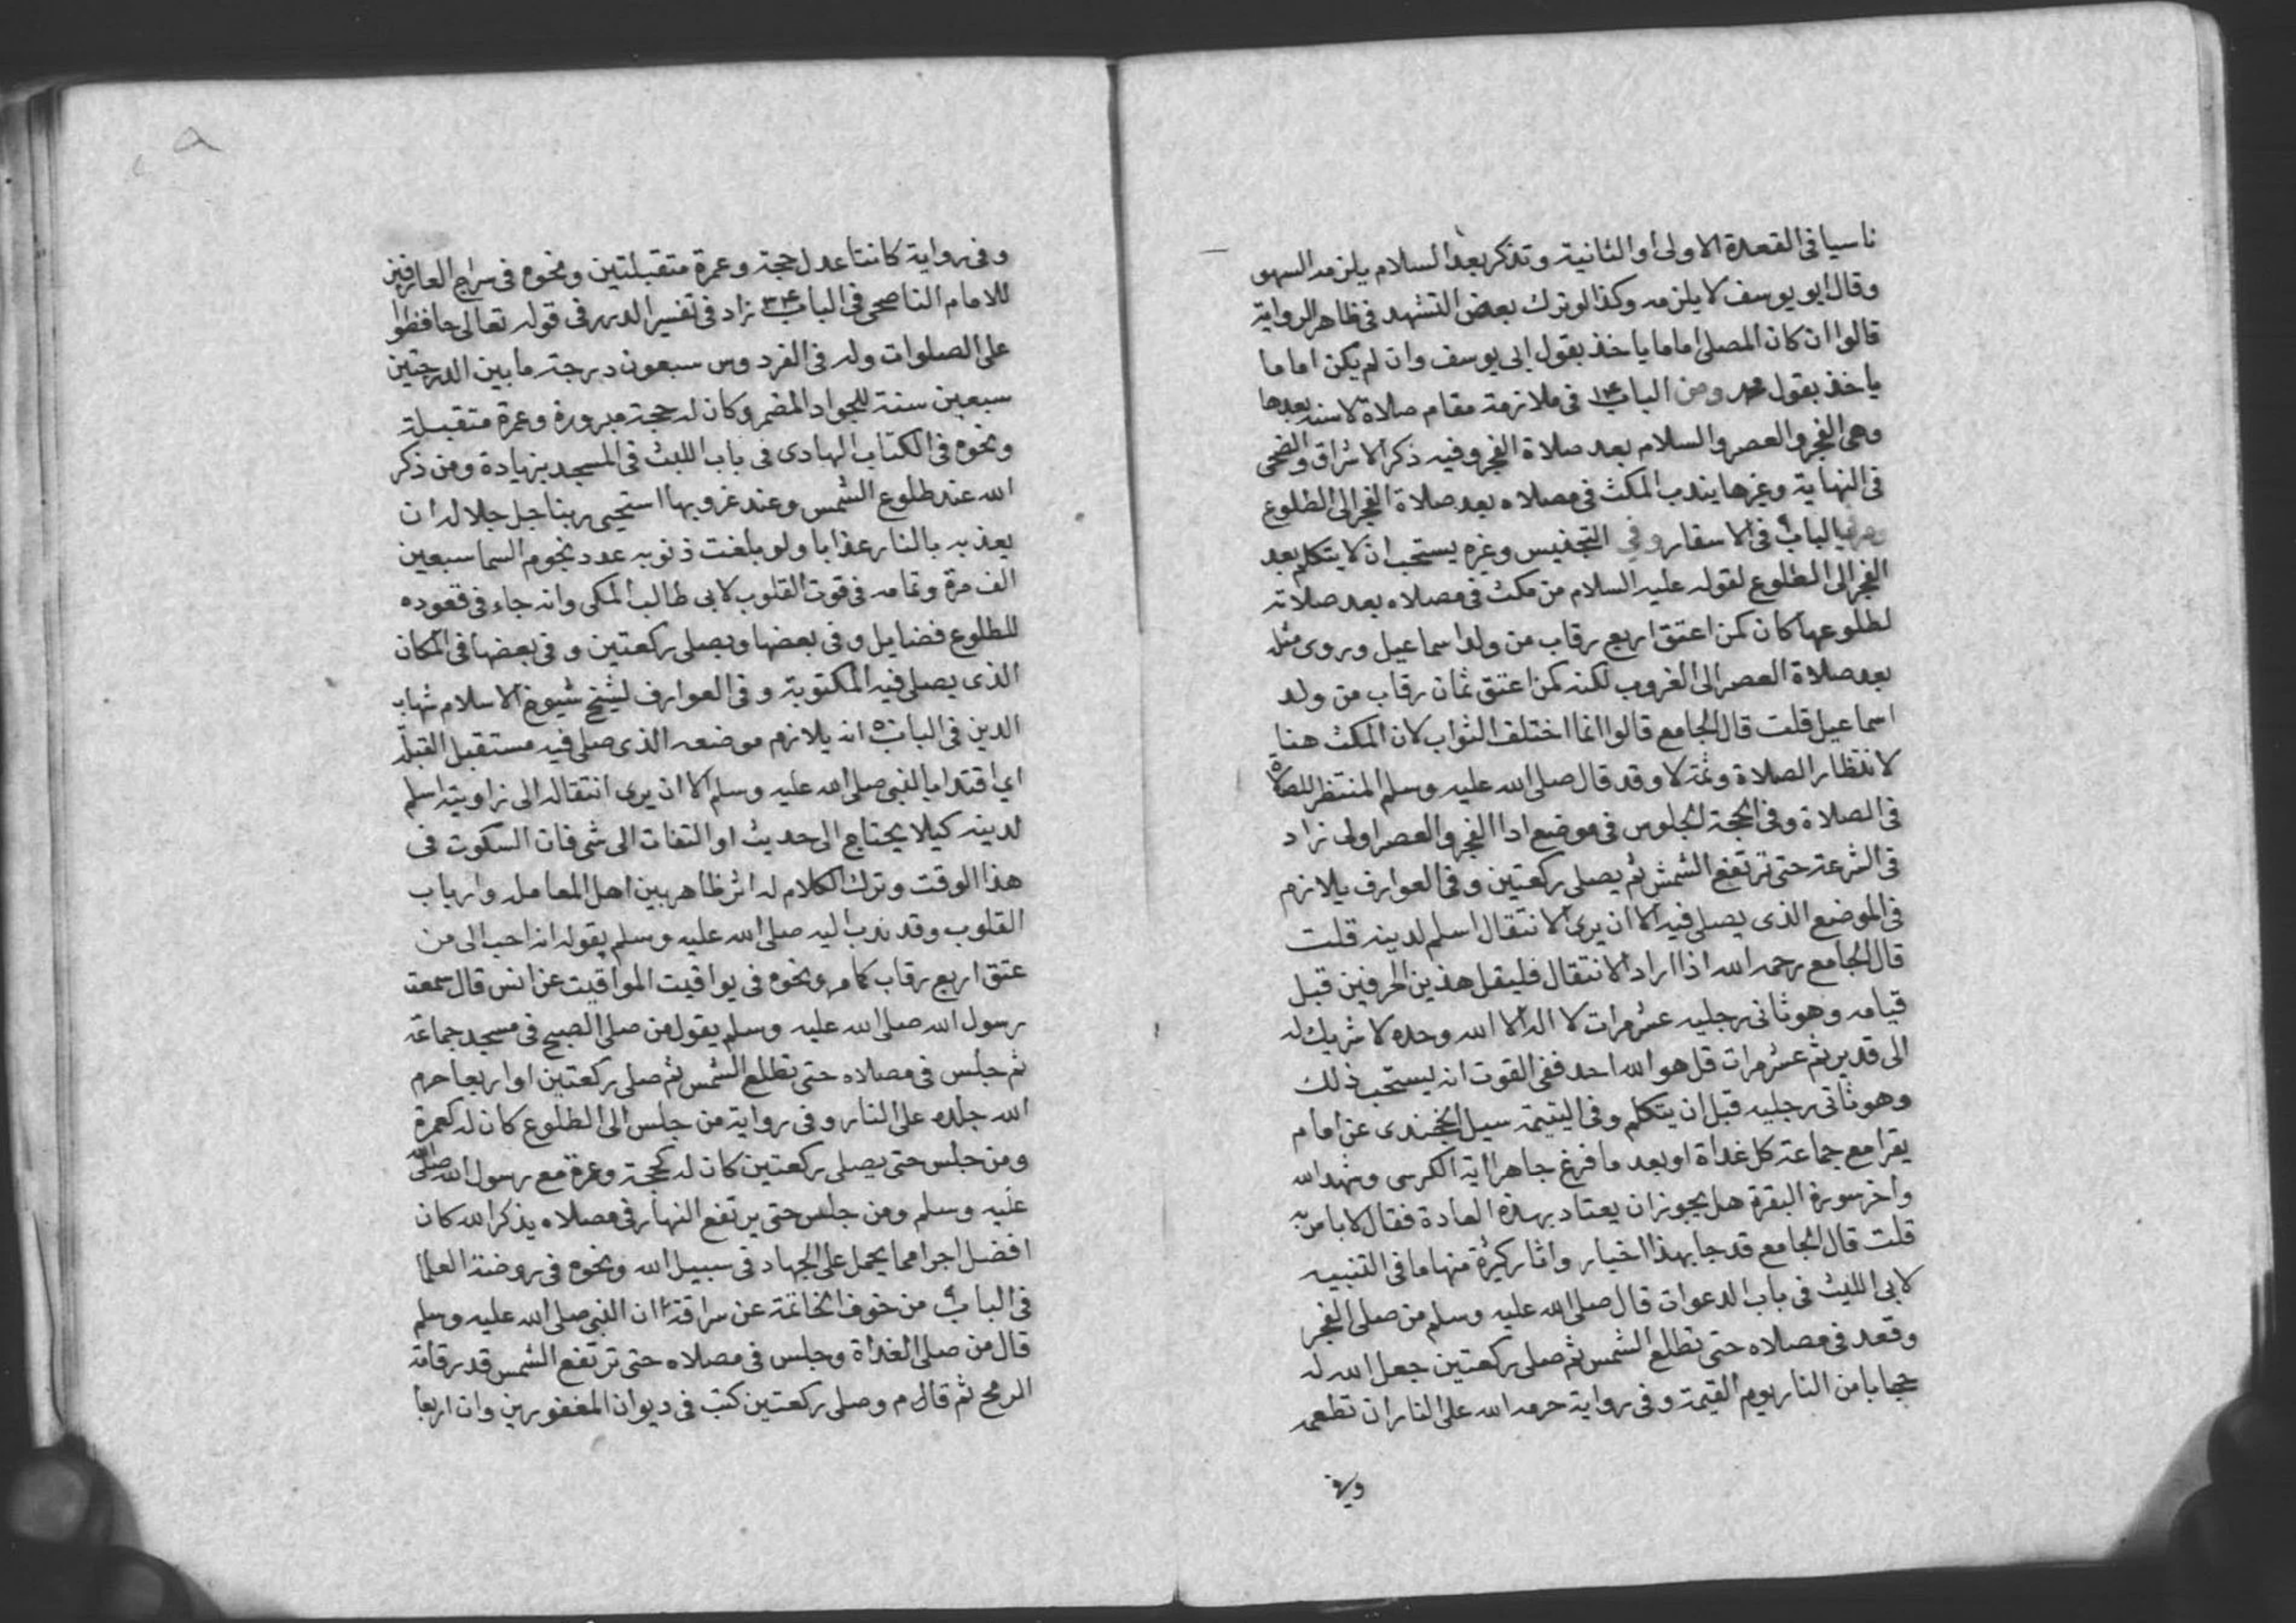 ناسيا فى القعدة الاولى او الثانية وتذكر بعد السلام يلزمه السهو
وقال ابو يوسف لا يلزمه وكذا لو ترك بعض التشهد فى ظاهر الرواية
قالوا ان كان المصلى اماما ياخذ بقول ابى يوسف وان لم يكن اماما
ياخذ بقول محمد ومن الباب ١٣ فى ملازمة مقام صلاة لا سنة بعدها
وهى الفجر والعصر والسلام بعد صلاة الفجر وفيه ذكر الاشراق والضحى
فى النهاية وغيرها يندب المكث فى مصلاه بعد صلاة الفجر الى الطلوع
الباب فى الاسفار وفى التجنيس وغيره يستحب ان لا يتكلم بعد
الفجر الى الطلوع لقوله عليه السلام من مكث فى مصلاه بعد صلاته
لطلوعها كان كمن اعتق اربع رقاب من ولد اسماعيل وروى مثله
بعد صلاة العصر الى الغروب لكنه كمن اعتق ثمان رقاب من ولد
اسماعيل قلت قال الجامع قالوا انما اختلف الثواب لان المكث هنا
لانتظار الصلاة وثمة لا وقد قال صلى الله عليه وسلم المنتظر للصلاة
فى الصلاة وفى الحجة الجلوس فى موضع ادا الفجر والعصر اولى زاد
فى الشرعة حتى ترتفع الشمش ثم يصلى ركعتين وفى العوارف يلازم
فى الموضع الذى يصلى فيه الا ان يرى الانتقال اسلم لدينه قلت
قال الجامع رحمه الله اذا اراد الانتقال فليقل هذين الحرفين قبل
قيامه وهو ثانى رجليه عشر مرات لا اله الا الله وحده لا شريك له
الى قدير ثم عشر مرات قل هو الله احد ففى القوت انه يستحب ذلك
وهو ثانى رجليه قبل ان يتكلم وفى اليتيمة سيل الخجندى عن امام
يقرا مع جماعته كل غداة او بعد ما فرغ جاهرا اية الكرسى وشهد الله
واخر سورة البقرة هل يجوز ان يعتاد بهذه العادة فقال لا باس به
قلت قال الجامع قد جا بهذا اخبار واثار كثيرة منها ما فى التنبيه
لابى الليث فى باب الدعوات قال صلى الله عليه وسلم من صلى الفجر
وقعد فى مصلاه حتى تطلع الشمس ثم صلى ركعتين جعل الله له
حجابا من النار يوم القيمة وفى رواية حرمه الله على النار ان تطعمه
وفى
وفى رواية كانتا عدل حجة وعمرة متقبلتين ونحوه فى سراج العارفين
للامام الناصحى فى الباب ٣٤ زاد فى تفسير الدرر فى قوله تعالى حافظوا
على الصلوات وله فى الفردوس سبعون درجة ما بين الدرجتين
سبعين سنة للجواد المضمر وكان له حجة مبرورة وعمرة متقبلة
ونحوه فى الكتاب الهادى فى باب اللبث فى المسجد بزيادة ومن ذكر
الله عند طلوع الشمس وعند غروبها استحيى ربنا جل جلاله ان
يعذبه بالنار عذابا ولو بلغت ذنوبه عدد نجوم السما سبعين
الف مرة وتمامه فى قوت القلوب لابى طالب المكى وانه جاء فى قعوده
للطلوع فضايل وفى بعضها ويصلى ركعتين وفى بعضها فى المكان
الذى يصلى فيه المكتوبة وفى العوارف لشيخ شيوخ الاسلام شهاب
الدين فى الباب ٥ انه يلازم موضعه الذى صلى فيه مستقبل القبلة
اي اقتدا بالنبى صلى الله عليه وسلم الا ان يرى انتقاله الى زاويته اسلم
لدينه كيلا يحتاج الى حديث او التفات الى شى فان السكوت فى
هذا الوقت وترك الكلام له اثر ظاهر بين اهل المعامله وارباب
القلوب وقد ندب اليه صلى الله عليه وسلم بقوله انه احب الى من
عتق اربع رقاب كامر ونحوه فى يواقيت المواقيت عن انس قال سمعت
رسول الله صلى الله عليه وسلم يقول من صلى الصبح فى مسجد جماعة
ثم جلس فى مصلاه حتى تطلع الشمس ثم صلى ركعتين او اربعا حرم
الله جلده على النار وفى رواية من جلس الى الطلوع كان له كعمرة
ومن جلس حتى يصلى ركعتين كان له كحجة وعمرة مع رسول الله صلى الله
عليه وسلم ومن جلس حتى يرتفع النهار فى مصلاه يذكر الله كان
افضل اجرا مما يحمل على الجهاد فى سبيل الله ونحوه فى روضة العلما
فى الباب من خوف الخاتمة عن سراقة ان النبى صلى الله عليه وسلم
قال من صلى الغداة وجلس فى مصلاه حتى ترتفع الشمس قدر قامة
الرمح ثم قال م وصلى ركعتين كتب فى ديوان المغفورين وان اربعا